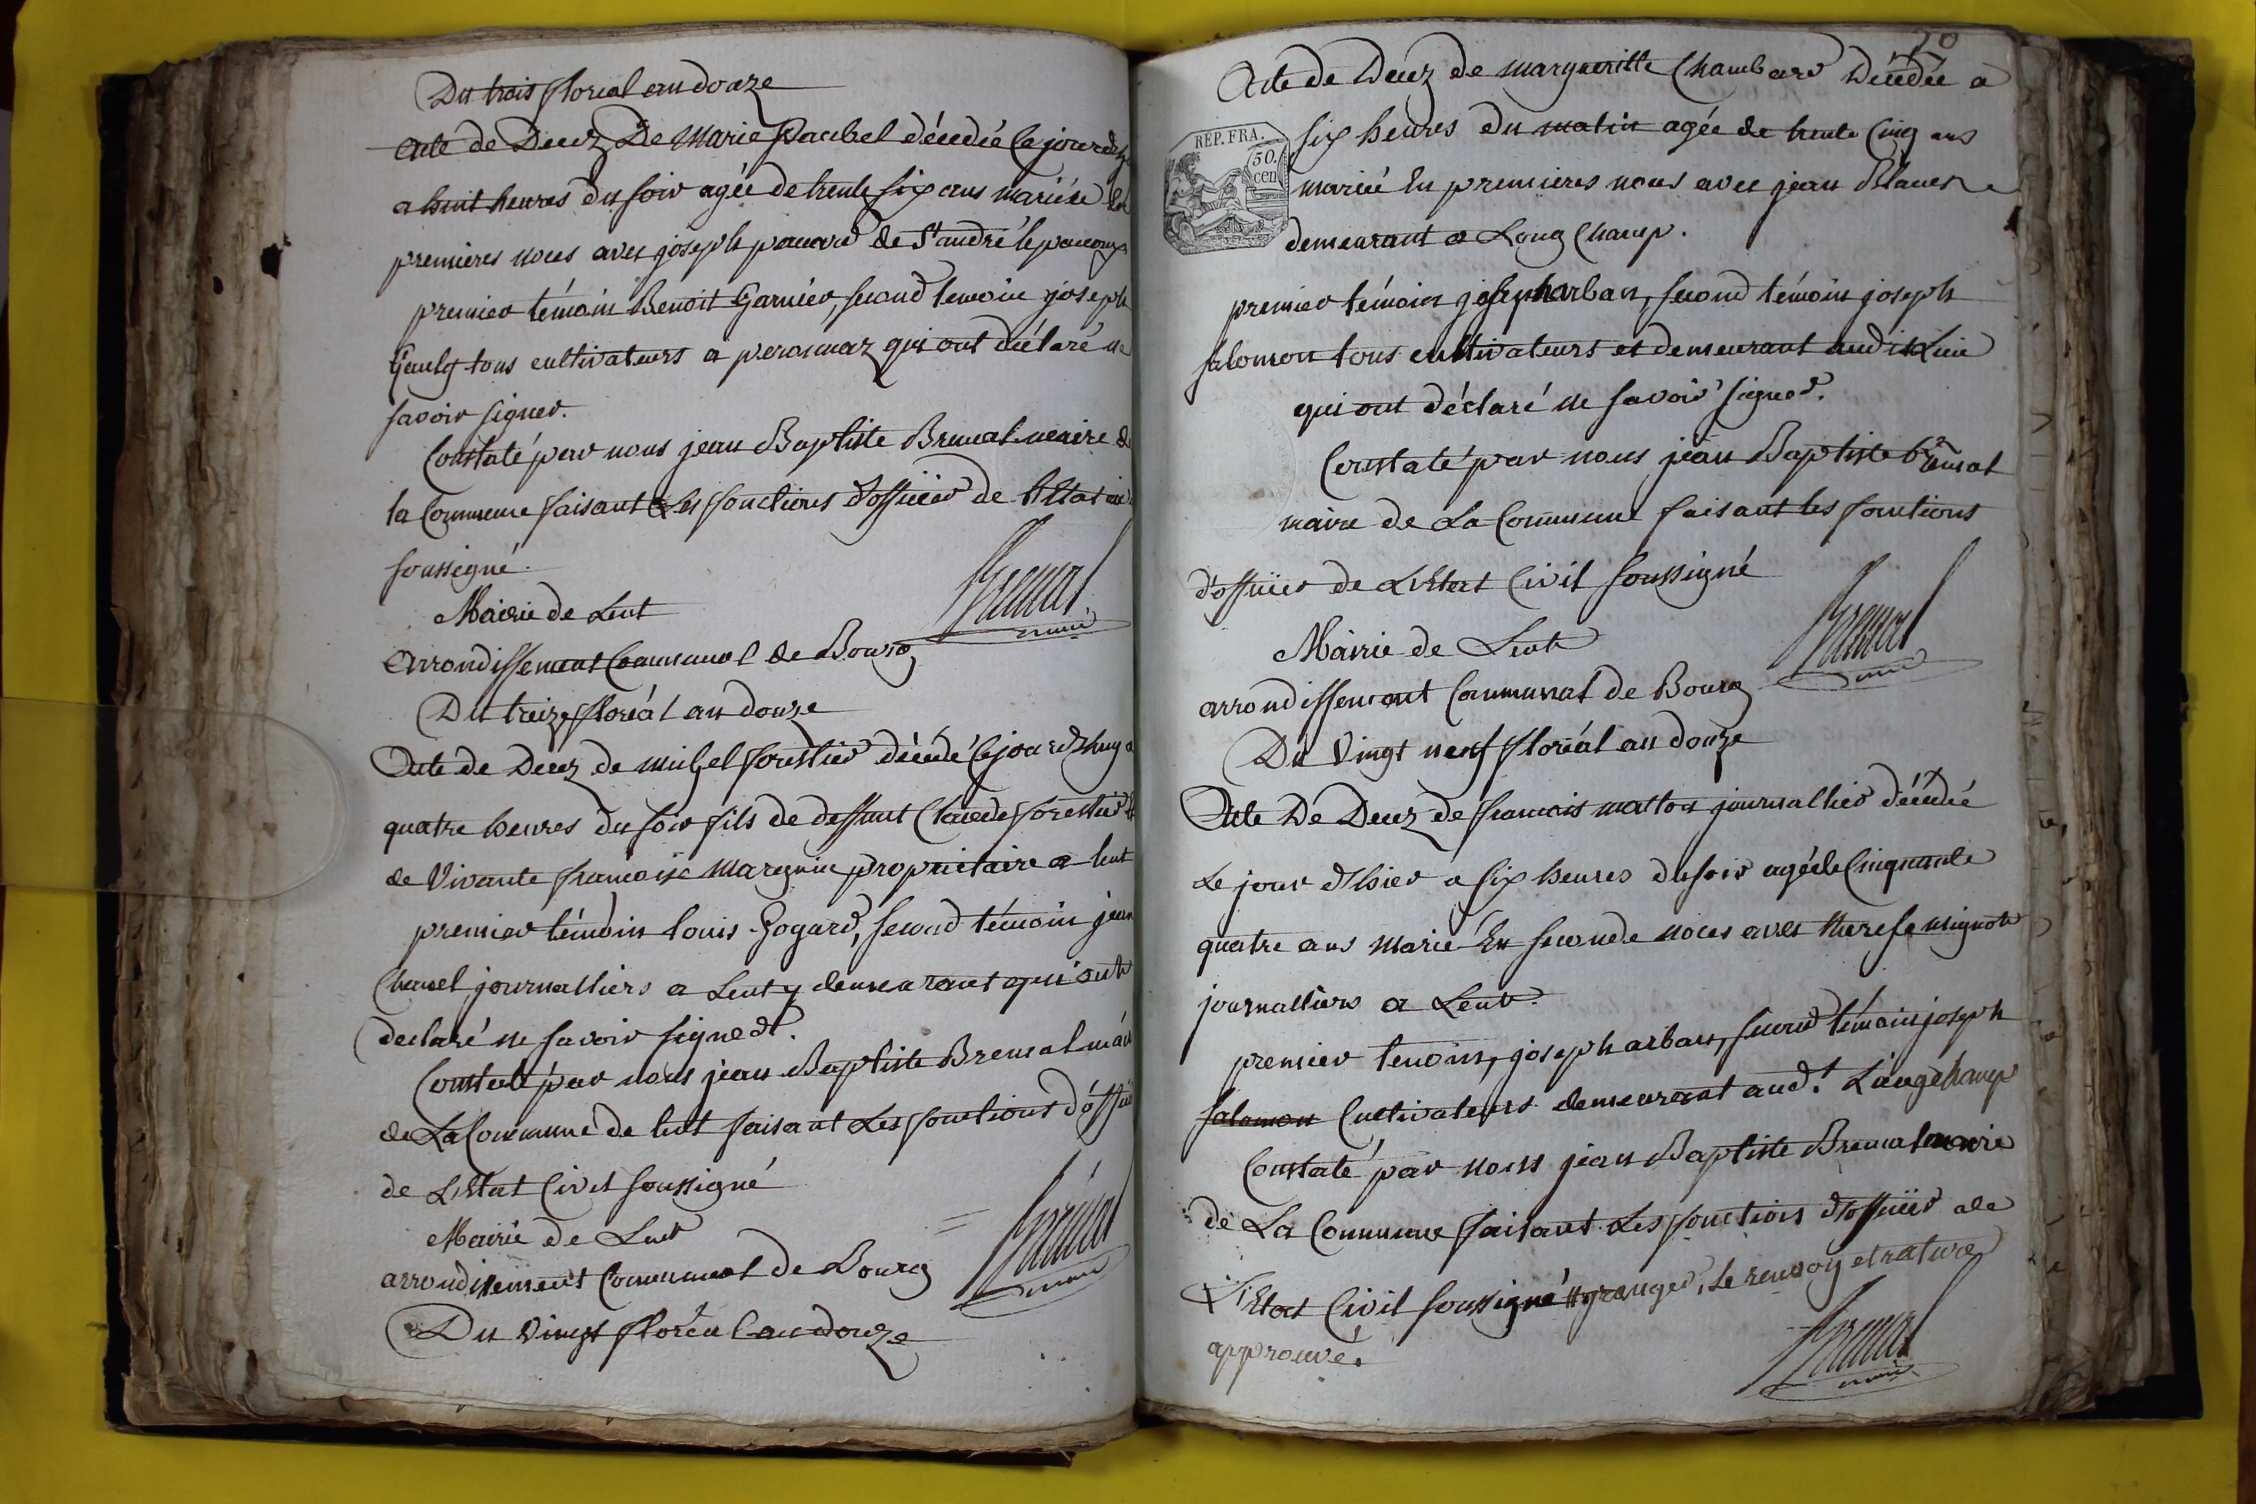 Du trois floréal an douze
Acte de Decez De Marie décédée Ce jourdhuy
a huit heures du soir agée de trente six ans mariée En
premieres noces avec joseph de St andré le panoux
premier témoin Benoit Garnier, second temoin joseph
tous cultivateurs a peronnaz qui ont déclaré ne
savoir signer.
Constaté par nous jean Baptiste Brunat maire de
la Commune faisant Les fonctions d'officier de l'Etat civil
soussigné.
Mairie de Lent
Brunat
maire
Arrondissement Communal de Bourg
Du treize floréal an douze
Acte de Decez de michel forestier décédé Ce jourdhuy a
quatre heures du soir fils de deffunt Claude forestier et
de Vivante francoise Marguin propriétaire a lent
premier témoin louis Gogard, second témoin jean
Chanel journalliers a Lent y demeurant qui ont
declaré ne savoir signer.
Constaté par nous jean Baptiste Brunat maire
de La Commune de lent faisant Les fonctions d'officier
de L'Etat Civil soussigné
Mairie de Lent
Brunat
maire
arrondissement Communal de Bourg
Du Vingt floréal an douze
70
Acte de Decez de margueritte Chambard Décédée a
REP. FRA.
50.
cen
six heures du matin agée de trente Cinq ans
mariée En premieres noces avec jean
demeurant a Long Champ.
premier témoin joseph arban, second témoin joseph
salomon tous cultivateurs et demeurant audit Lieu
qui ont déclaré ne savoir signer.
Constaté par nous jean Baptiste Brunat
maire de La Commune faisant les fonctions
d'officier de L'Etat Civil soussigné
Mairie de Lent
Brunat
maire
arrondissement Communal de Bourg
Du Vingt neuf floréal an douze
Acte De Decez de francois matton journallier décédé
Le jour d'hier a six heures du soir agé de Cinquante
quatre ans marié En seconde noces avec therese mignot
journalliers a Lent.
premier temoin, joseph arban, second témoin joseph
salomon Cultivateurs demeurant aud.t Longchamp
Constaté par nous jean Baptiste Brunat maire
de La Commune faisant Les fonctions d'officier de
L'Etat Civil soussigné # granger, le renvoy et rature
approuvé.
Brunat
maire